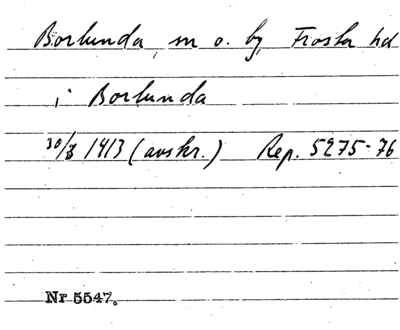 Borlunda, sn o. by, Frosta hd
i Borlunda
30/8 1413 (avskr.) Rep. 5275-76
Nr 5547.